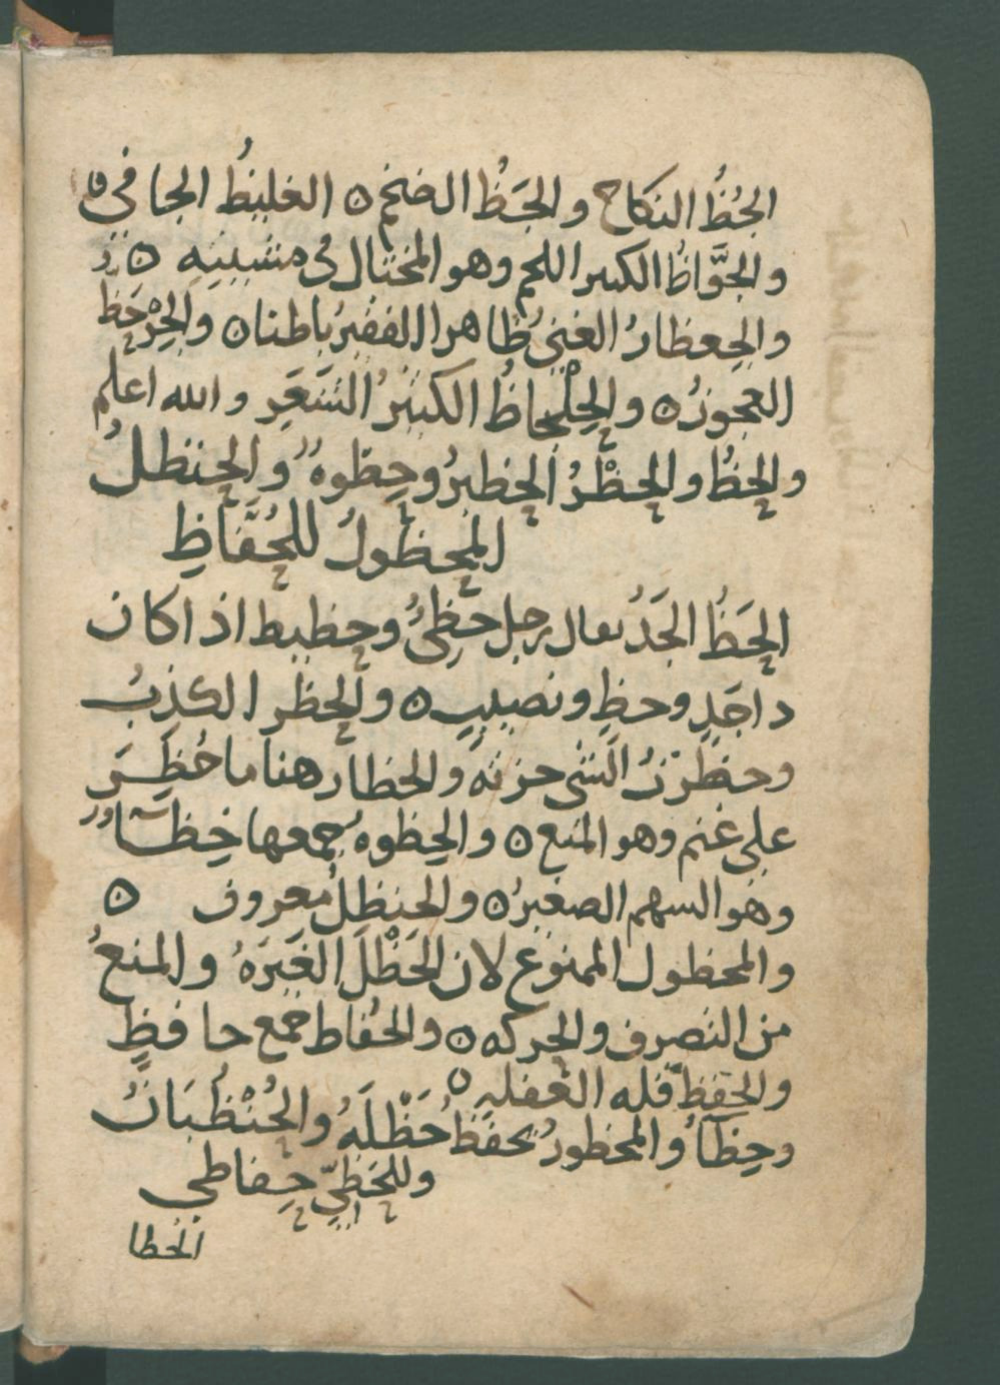 الجُظُّ النكاح والجَظُّ الضخم ه الغليظُ الجافي ه
والجَوَّاظُ الكثير اللحم وهو المختال في مشيته ه
والجِعظارُ الغني ظاهرا الفقيرُ باطنا ه والجِرْحَظُ
العجوزُ ه والجِلْحاظُ الكثيرُ الشَعَرِ والله اعلم
والحظُّ والحِظْرُ الحِظيرُ وحِظوهٌ والحنظلُ
المحظولُ للحُفَّاظِ
الحَظُّ الجَدُّ يقال رجل حَظِيٌّ وحظيظ اذا كان
ذا جَدٍ وحظٍ ونصيبٍ ه والحِظر الكذِبُ
وحظرْتُ الشي حزته والحظار هنا ما حُظِرَ
على غنم وهو المنع ه والحِظوه جمعها حِظاء
وهو السهم الصغيرُ ه والحنظلُ معروف ه
والمحظول الممنوع لان الحَظْلَ الغَيرَهُ والمنعُ
من التصرف والحركه ه والحُفاظ جمع حافظٍ
والحِفظ قله الغفله ه
وحِظَاءُ والمحظورُ يحفظُ حَظْلَهُ والحُنْظُبَانُ
وللحَظِيِّ حِفاظي
الحظا